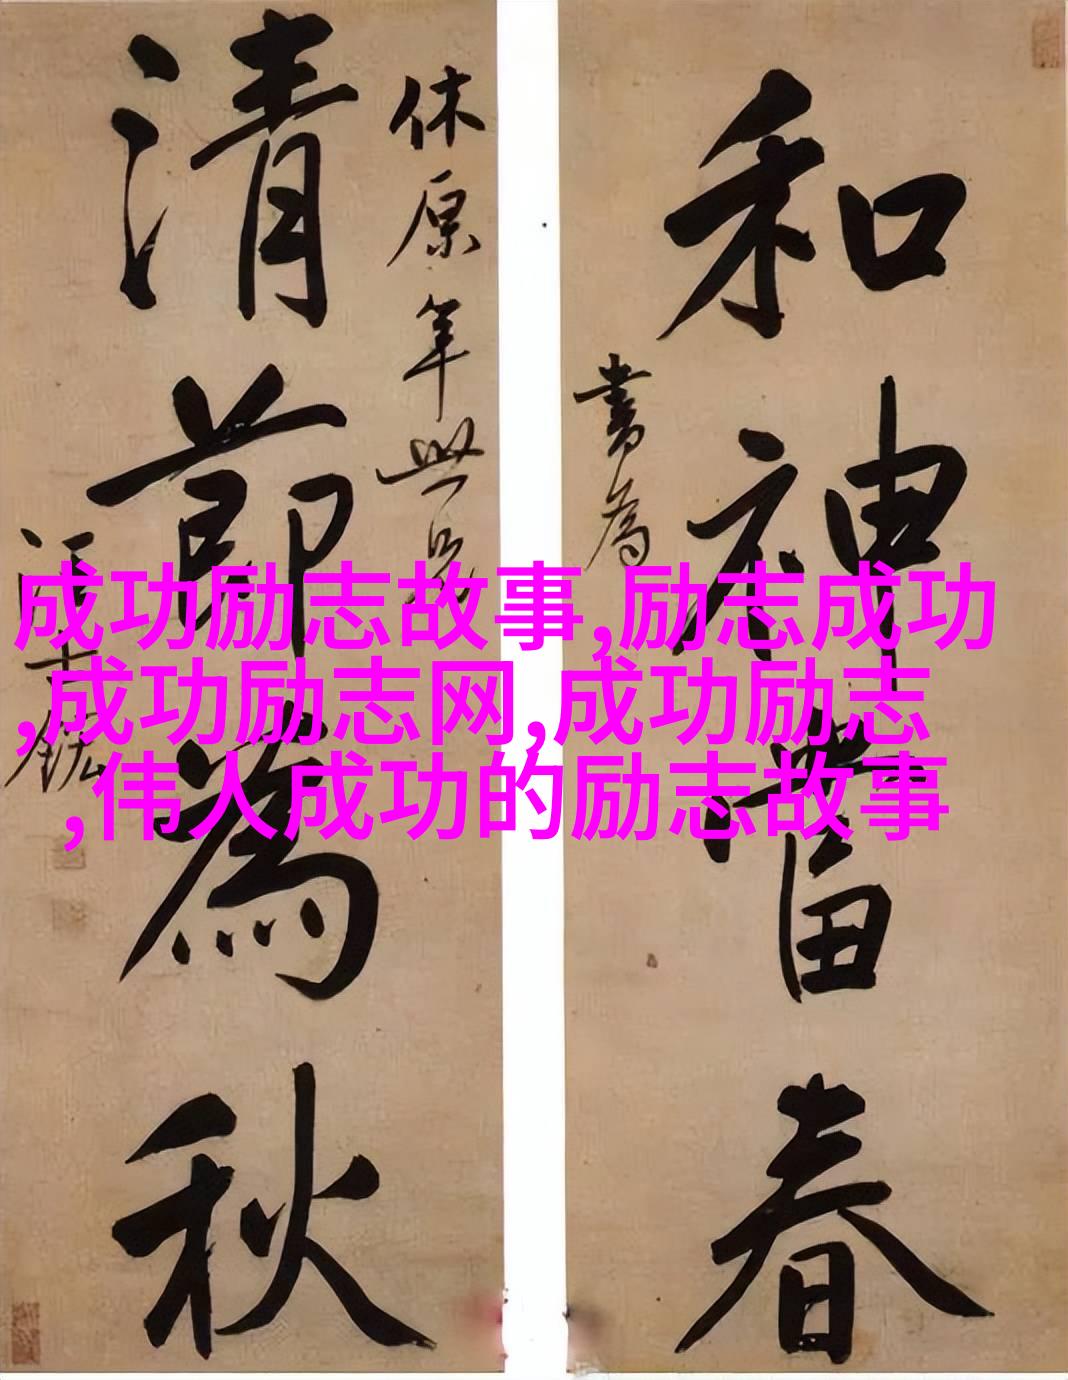 和神當春
書為
休原年世兄
清節為秋
汪士鋐
成功励志故事,励志成功
,成功励志网,成功励志
,伟人成功的励志故事